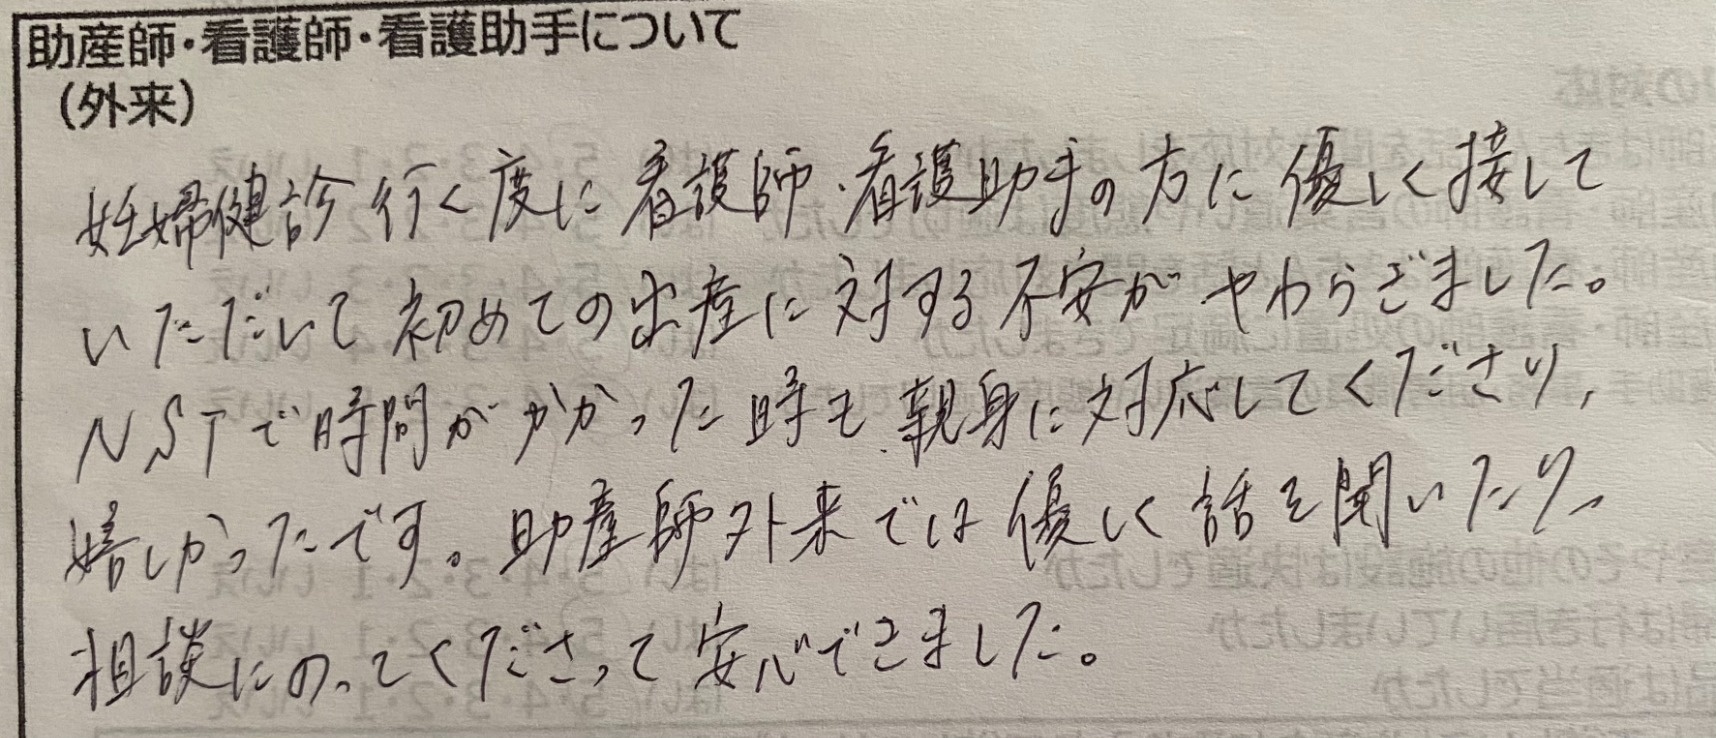 助産師・看護師・看護助手について
(外来)
妊婦健診行く度に看護師、看護助手の方に優しく接して
いただいて初めての出産に対する不安がやわらぎました。
NSTで時間がかかった時も親身に対応してくださり、
嬉しかったです。助産師外来では優しく話を聞いたり、
相談にのってくださって安心できました。